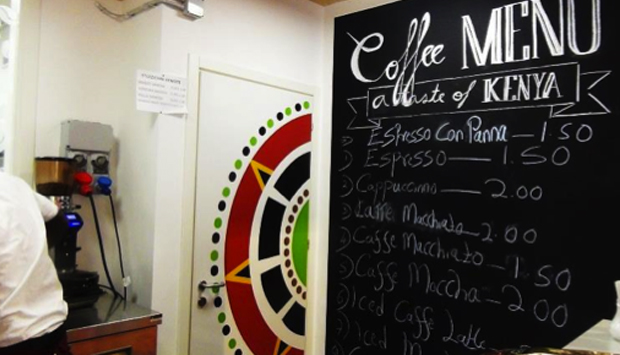 Coffee MENU
a taste of KENYA
Espresso Con Panna — 1.50
Espresso — 1.50
Cappuccino — 2.00
Latte Macchiato — 2.00
Caffe Macchiato — 1.50
Caffe Moccha — 2.00
Iced Caffe Latte
Iced